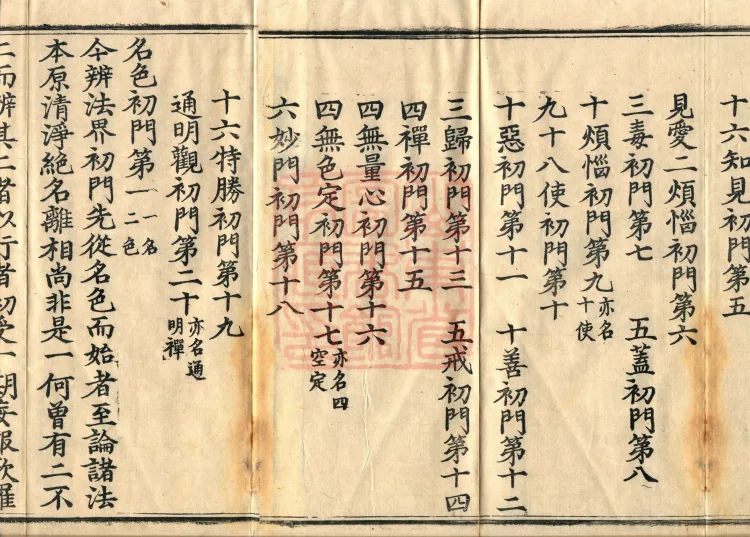 十六知見初門第五
見愛二煩惱初門第六
三毒初門第七　五蓋初門第八
十煩惱初門第九亦名十使
九十八使初門第十
十惡初門第十一　十善初門第十二
三歸初門第十三　五戒初門第十四
四禪初門第十五
四無量心初門第十六
四無色定初門第十七亦名四空定
六妙門初門第十八
十六特勝初門第十九
通明觀初門第二十亦名通明禪
名色初門第一一名二色
今辨法界初門先從名色而始者至論諸法
本原清淨絶名離相尚非是一何曾有二不
二而辨其二者以行者初受一期妄報歌羅